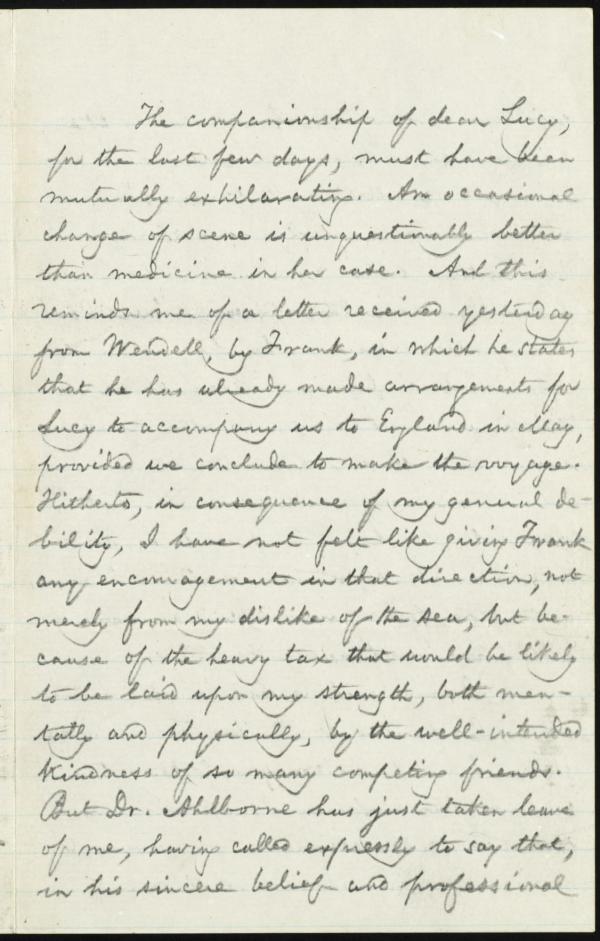 The companionship of dear Lucy,
for the last few days, must have been
mutually exhilarating. An occasional
change of scene is unquestionably better
than medicine in her case. And this
reminds me of a letter received yesterday
from Wendell, by Frank, in which he states
that he has already made arrangements for
Lucy to accompany us to England in May,
provided we conclude to make the voyage.
Hitherto, in consequence of my general de-
bility, I have not felt like giving Frank
any encouragement in that direction, not
merely from my dislike of the sea, but be-
cause of the heavy tax that would be likely
to be laid upon my strength, both men-
tally and physically, by the well-intended
kindness of so many competing friends.
But Dr. Ahlborne has just taken leave
of me, having called expressly to say that,
in his sincere belief and professional